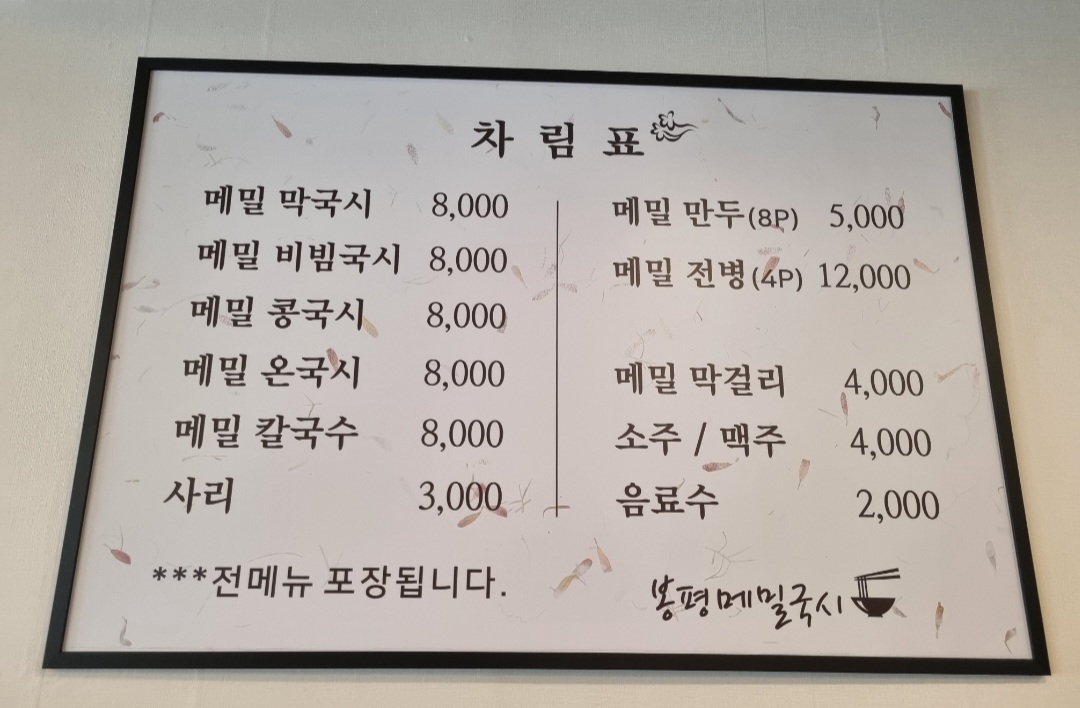 차림표
메밀 막국시 8,000
메밀 비빔국시 8,000
메밀 콩국시 8,000
메밀 온국시 8,000
메밀 칼국수 8,000
사리 3,000
메밀 만두(8P) 5,000
메밀 전병(4P) 12,000
메밀 막걸리 4,000
소주 / 맥주 4,000
음료수 2,000
***전메뉴 포장됩니다.
봉평메밀국시